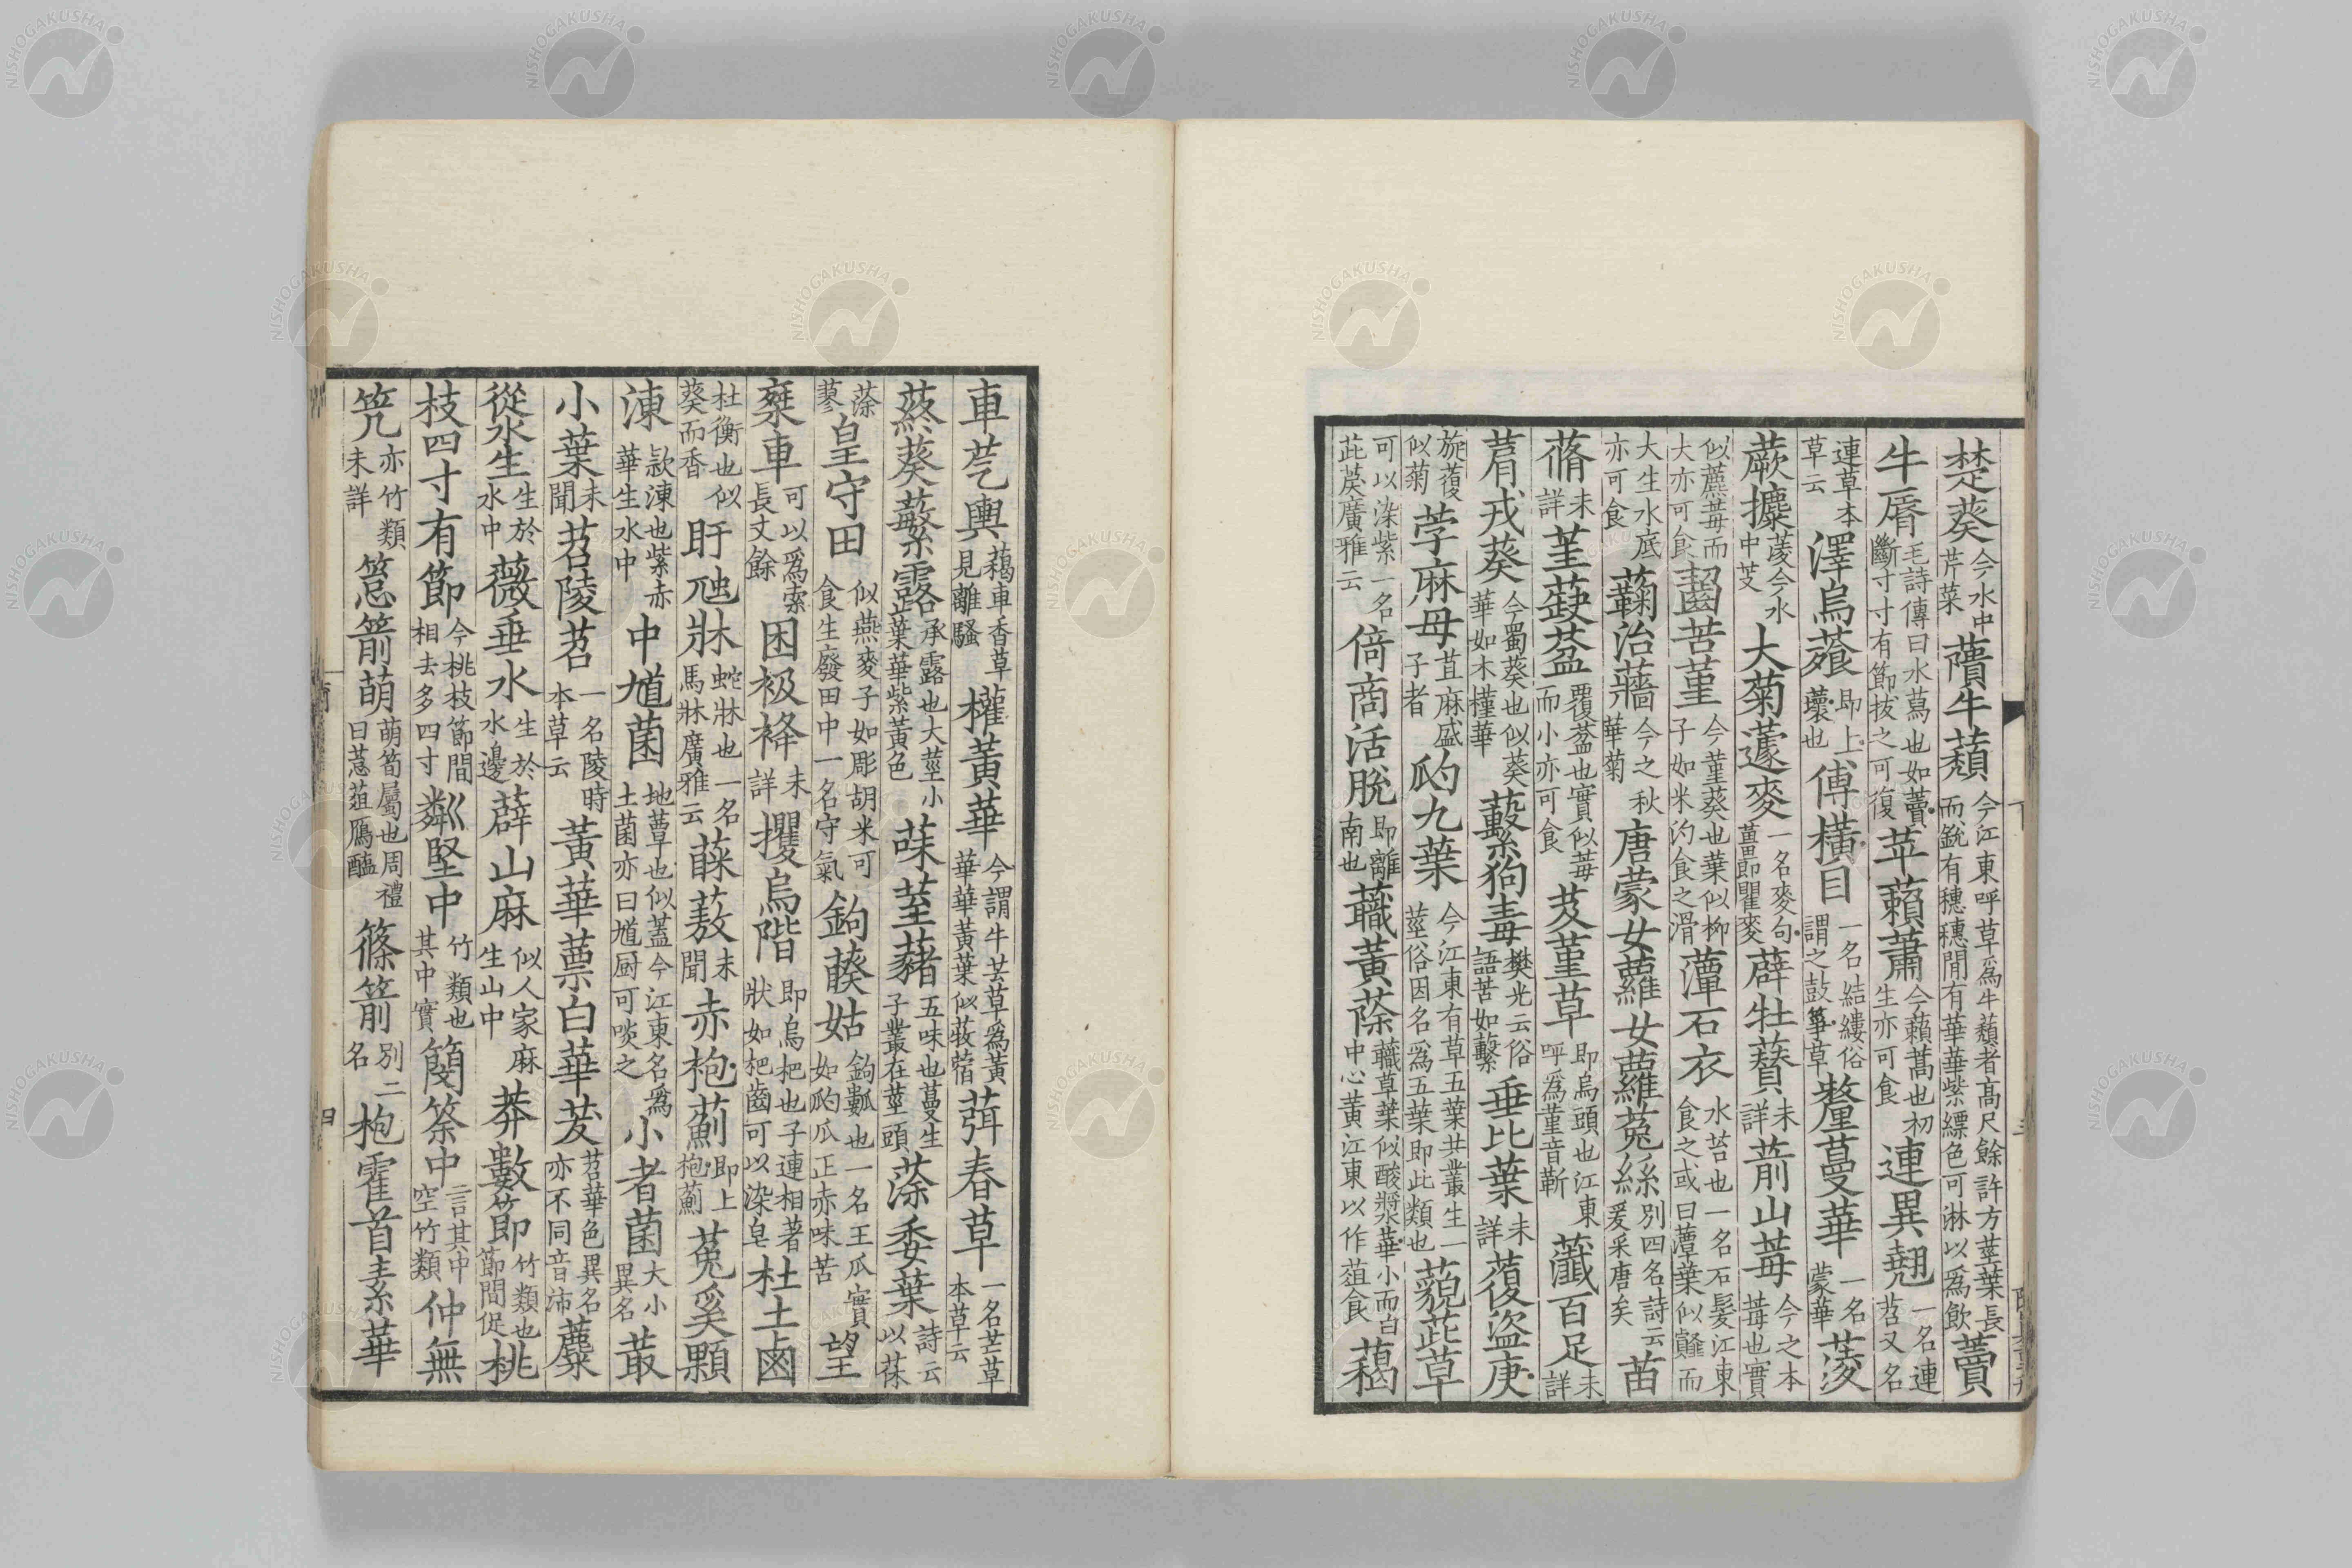 楚葵今水中芹菜藬牛蘈今江東呼草爲牛蘈者高尺餘許方莖葉長而銳有穗穗閒有華華紫縹色可淋以爲飲藚
牛脣毛詩傳曰水蕮也如藚斷寸寸有節拔之可復苹藾蕭今藾蒿也初生亦可食連異翹一名連苕又名
連草本草云澤烏蕵即上壞也傅橫目一名結縷俗謂之鼓箏草釐蔓華一名蒙華蔆
蕨攗蔆今水中芰大菊蘧麥一名麥句薑即瞿麥薜牡䕬未詳葥山莓今之木莓也實
似藨莓而大亦可食齧苦堇今堇葵也葉似柳子如米汋食之滑藫石衣水苔也一名石髮江東食之或曰藫葉似䪥而
大生水底亦可食蘜治蘠今之秋華菊唐蒙女蘿女蘿菟絲別四名詩云爰采唐矣苗
蓨未詳堇蒛葐覆葐也實似莓而小亦可食芨堇草即烏頭也江東呼爲堇音靳虃百足未詳
菺戎葵今蜀葵也似葵華如木槿華蘻狗毒樊光云俗語苦如蘻垂比葉未詳蕧盜庚
旋蕧似菊荢麻母苴麻盛子者瓝九葉今江東有草五葉共叢生一莖俗因名爲五葉即此類也藐茈草
可以染紫一名茈䓞廣雅云倚商活脫即離南也蘵黃蒢蘵草葉似酸漿華小而白中心黃江東以作葅食藒
車芞輿藒車香草見離騷權黃華今謂牛芸草爲黃華華黃葉似荍蓿葞春草一名芒草本草云
蔠葵蘩露承露也大莖小葉華紫黃色菋荎藸五味也蔓生子叢在莖頭蒤委葉詩云以茠
蒤蓼皇守田似燕麥子如彫胡米可食生廢田中一名守氣鉤藈姑鉤㼎也一名王瓜實如瓝瓜正赤味苦望
椉車可以爲索長丈餘困衱袶未詳攫烏階即烏杷也子連相著狀如杷齒可以染皁杜土鹵
杜衡也似葵而香盱虺牀蛇牀也一名馬牀廣雅云蔝蔜未聞赤枹薊即上枹薊菟奚顆
涷款涷也紫赤華生水中中馗菌地蕈也似蓋今江東名爲土菌亦曰馗厨可啖之小者菌大小異名菆
小葉未聞苕陵苕一名陵時本草云黃華蔈白華茇苕華色異名亦不同音沛蘪
從水生生於水中薇垂水生於水邊薜山麻似人家麻生山中莽數節竹類也節閒促桃
枝四寸有節今桃枝節閒相去多四寸粼堅中竹類也其中實簢筡中言其中空竹類仲無
笐亦竹類未詳䈚箭萌萌筍屬也周禮曰䈚葅鴈醢篠箭別二名枹霍首素華